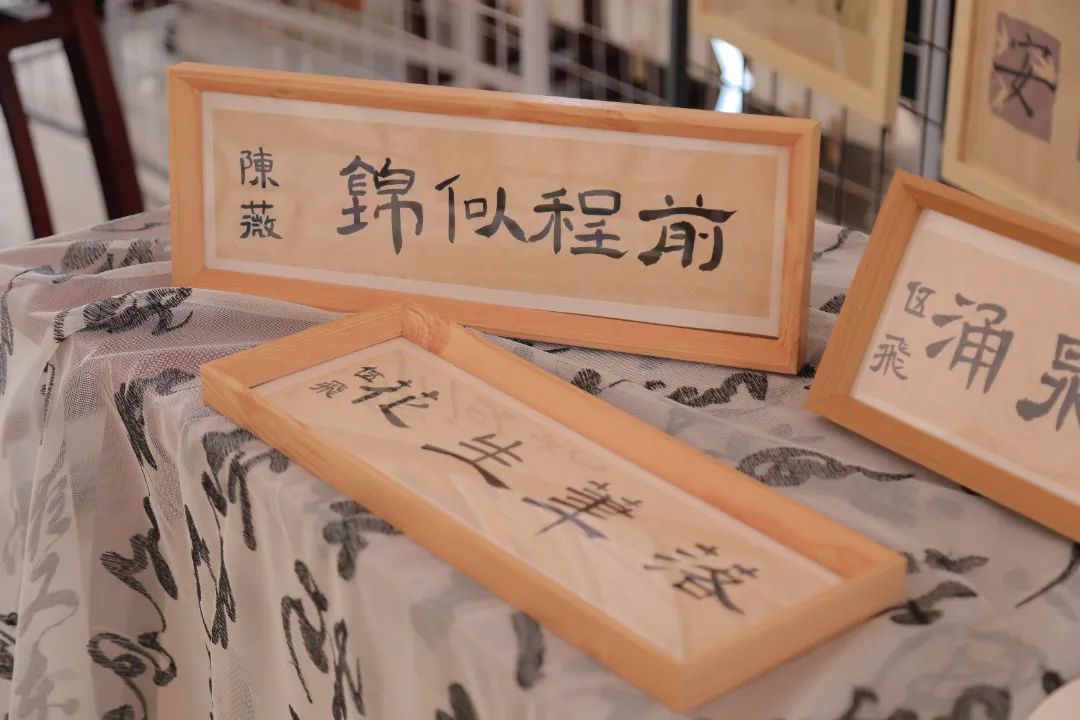 前程似錦
陳薇
落筆生花
区飛
泉涌
区飛
安